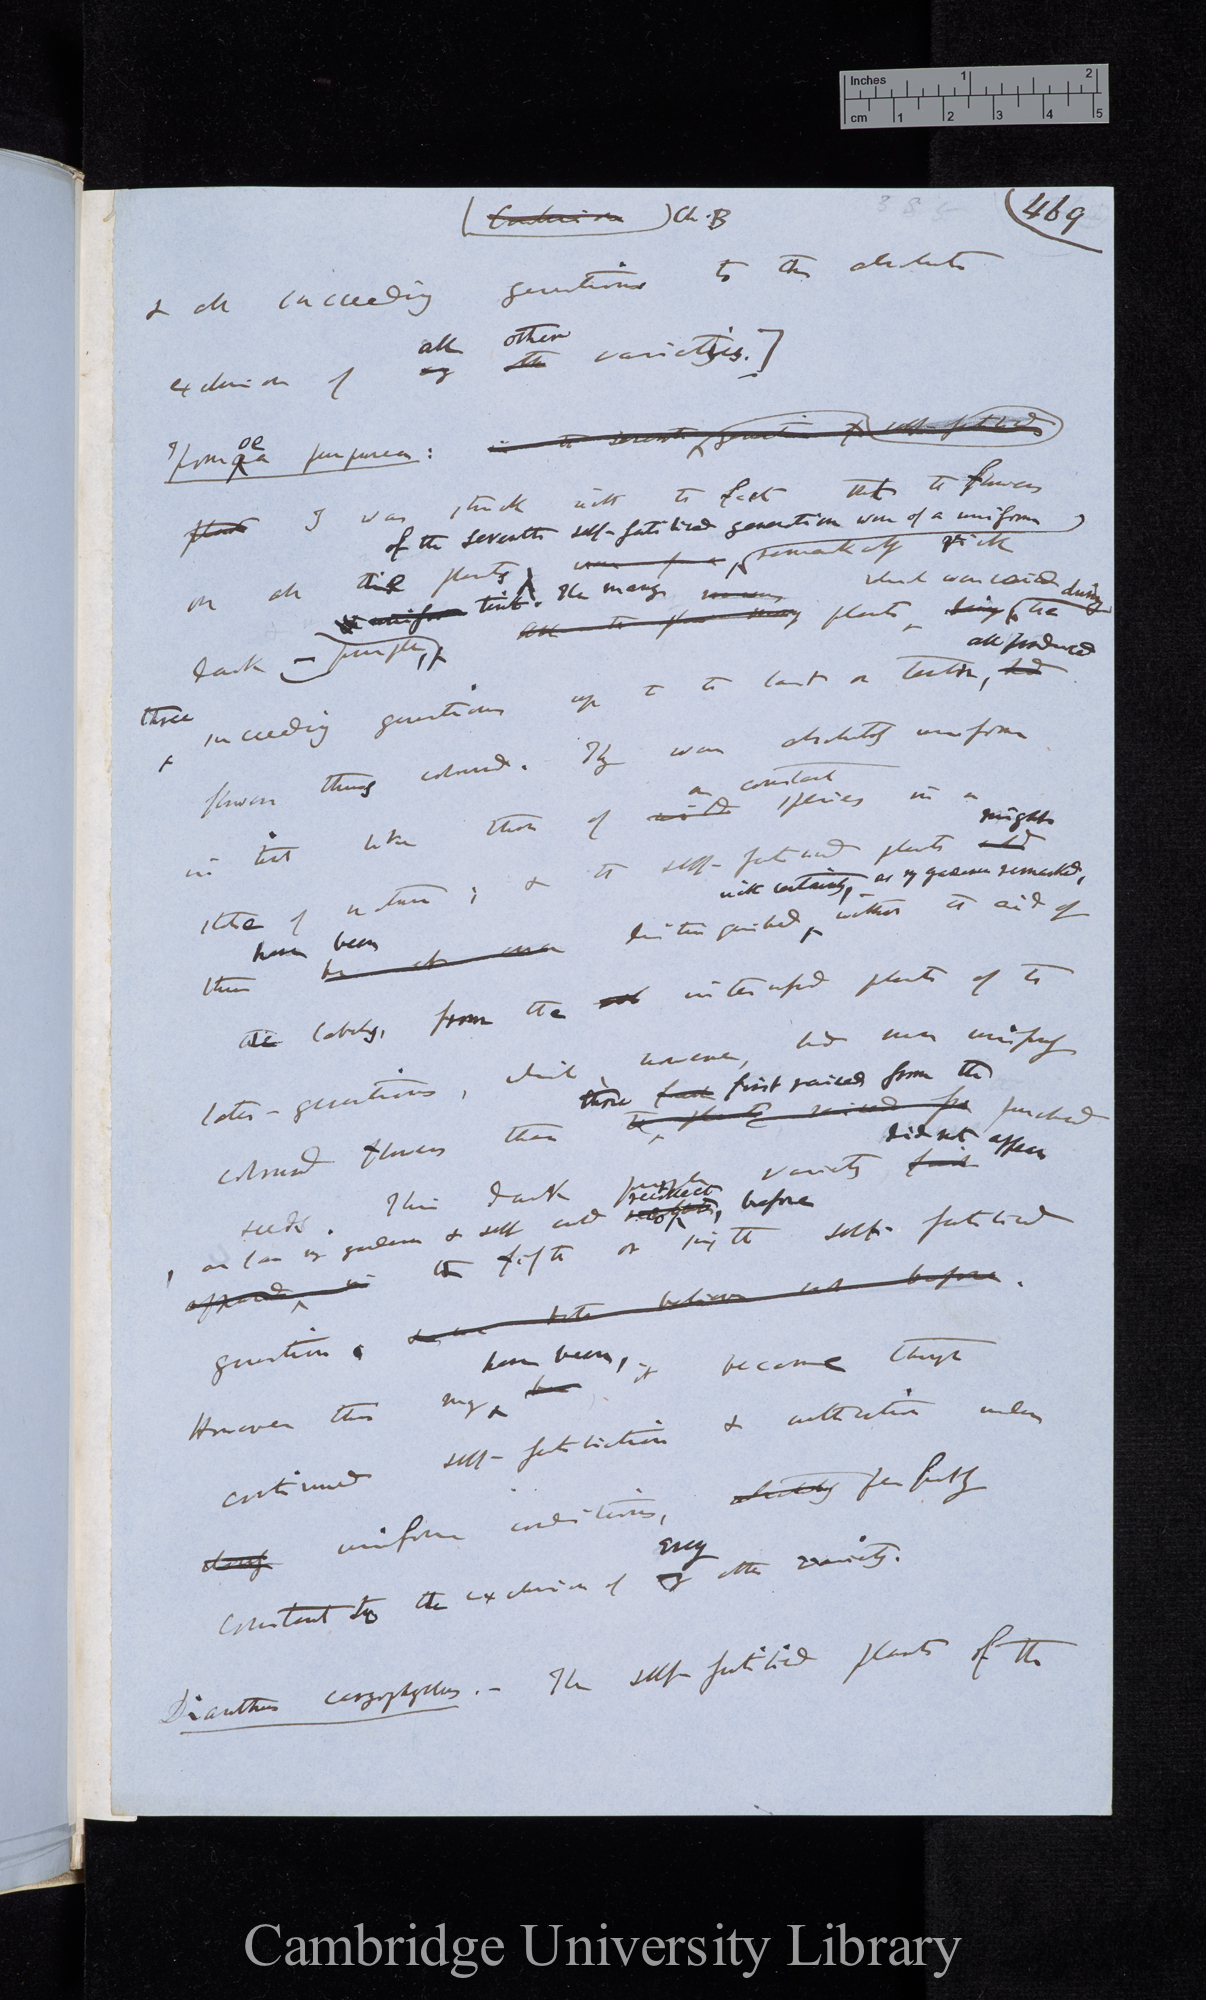 Inches 1 2
cm 1 2 3 4 5
Ch. B
469
& all succeeding generations to the absolute
all other
exclusion of varieties.]
Ipomoea purpurea:
I was struck with the fact that the flowers
of the seventh self-fertilised generation were of a uniform
on all the plants remarkably rich
tint. The many which were raised during
dark - purple, plants, the
all produced
three
succeeding generations up to the last or tenth,
flowers thus coloured. They were absolutely uniform
a constant
in tint like those of species in a
might
state of nature; & the self-fertilised plants
with certainty, as my gardener remarked,
have been
thus distinguished, without the aid of
labels, from the intercrossed plants of the
later-generations, which, however, had more uniformly
those first raised from the
coloured flowers than purchased
did not appear
seeds. This dark purple variety
as far as my gardener & self could recollect, before
the fifth or sixth self-fertilised
generation.
have been,
However this may it became through
continued self-fertilisation & cultivation under
uniform conditions, perfectly
every
constant to the exclusion of other variety.
Dianthus caryophyllus. - The self-fertilised plants of the
Cambridge University Library